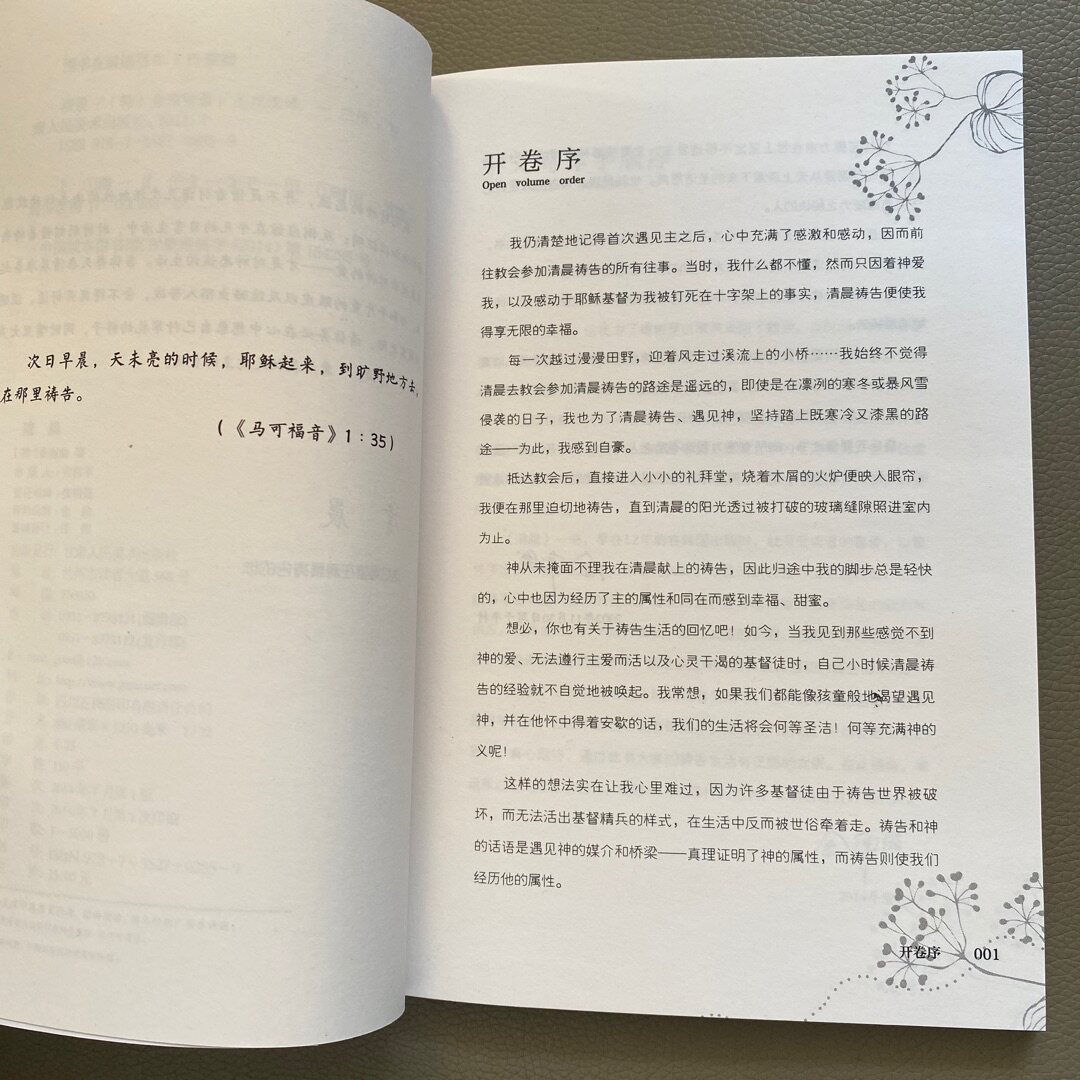 次日早晨，天未亮的时候，耶稣起来，到旷野地方去，
在那里祷告。
（《马可福音》1：35）
开卷序
Open volume order
我仍清楚地记得首次遇见主之后，心中充满了感激和感动，因而前
往教会参加清晨祷告的所有往事。当时，我什么都不懂，然而只因着神爱
我，以及感动于耶稣基督为我被钉死在十字架上的事实，清晨祷告便使我
得享无限的幸福。
每一次越过漫漫田野，迎着风走过溪流上的小桥……我始终不觉得
清晨去教会参加清晨祷告的路途是遥远的，即使是在凛冽的寒冬或暴风雪
侵袭的日子，我也为了清晨祷告、遇见神，坚持踏上既寒冷又漆黑的路
途——为此，我感到自豪。
抵达教会后，直接进入小小的礼拜堂，烧着木屑的火炉便映入眼帘，
我便在那里迫切地祷告，直到清晨的阳光透过被打破的玻璃缝隙照进室内
为止。
神从未掩面不理我在清晨献上的祷告，因此归途中我的脚步总是轻快
的，心中也因为经历了主的属性和同在而感到幸福、甜蜜。
想必，你也有关于祷告生活的回忆吧！如今，当我见到那些感觉不到
神的爱、无法遵行主爱而活以及心灵干渴的基督徒时，自己小时候清晨祷
告的经验就不自觉地被唤起。我常想，如果我们都能像孩童般地渴望遇见
神，并在他怀中得着安歇的话，我们的生活将会何等圣洁！何等充满神的
义呢！
这样的想法实在让我心里难过，因为许多基督徒由于祷告世界被破
坏，而无法活出基督精兵的样式，在生活中反而被世俗牵着走。祷告和神
的话语是遇见神的媒介和桥梁——真理证明了神的属性，而祷告则使我们
经历他的属性。
开卷序 001